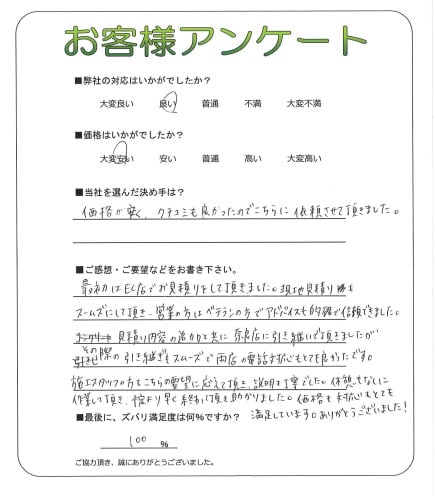 お客様アンケート
■弊社の対応はいかがでしたか？
大変良い　良い　普通　不満　大変不満
■価格はいかがでしたか？
大変安い　安い　普通　高い　大変高い
■当社を選んだ決め手は？
価格が安く、クチコミも良かったのでこちらに依頼させて頂きました。
■ご感想・ご要望などをお書き下さい。
最初はEC店でお見積りをして頂きました。現地見積り
スームズにして頂き、営業の方はベテランの方でアドバイスも的確で信頼できました。
見積り内容の追加などと共に奈良店に引き継いで頂きましたが
その際の引き継ぎもスムーズで両店の電話対応もとても良かったです。
施工スタッフの方もこちらの要望に応えて頂き、説明も丁寧でした。休憩もなしに
作業して頂き、予定より早く終わって頂き助かりました。価格も対応もとても
満足しています。ありがとうございました！
■最後に、ズバリ満足度は何%ですか？
100 %
ご協力頂き、誠にありがとうございました。